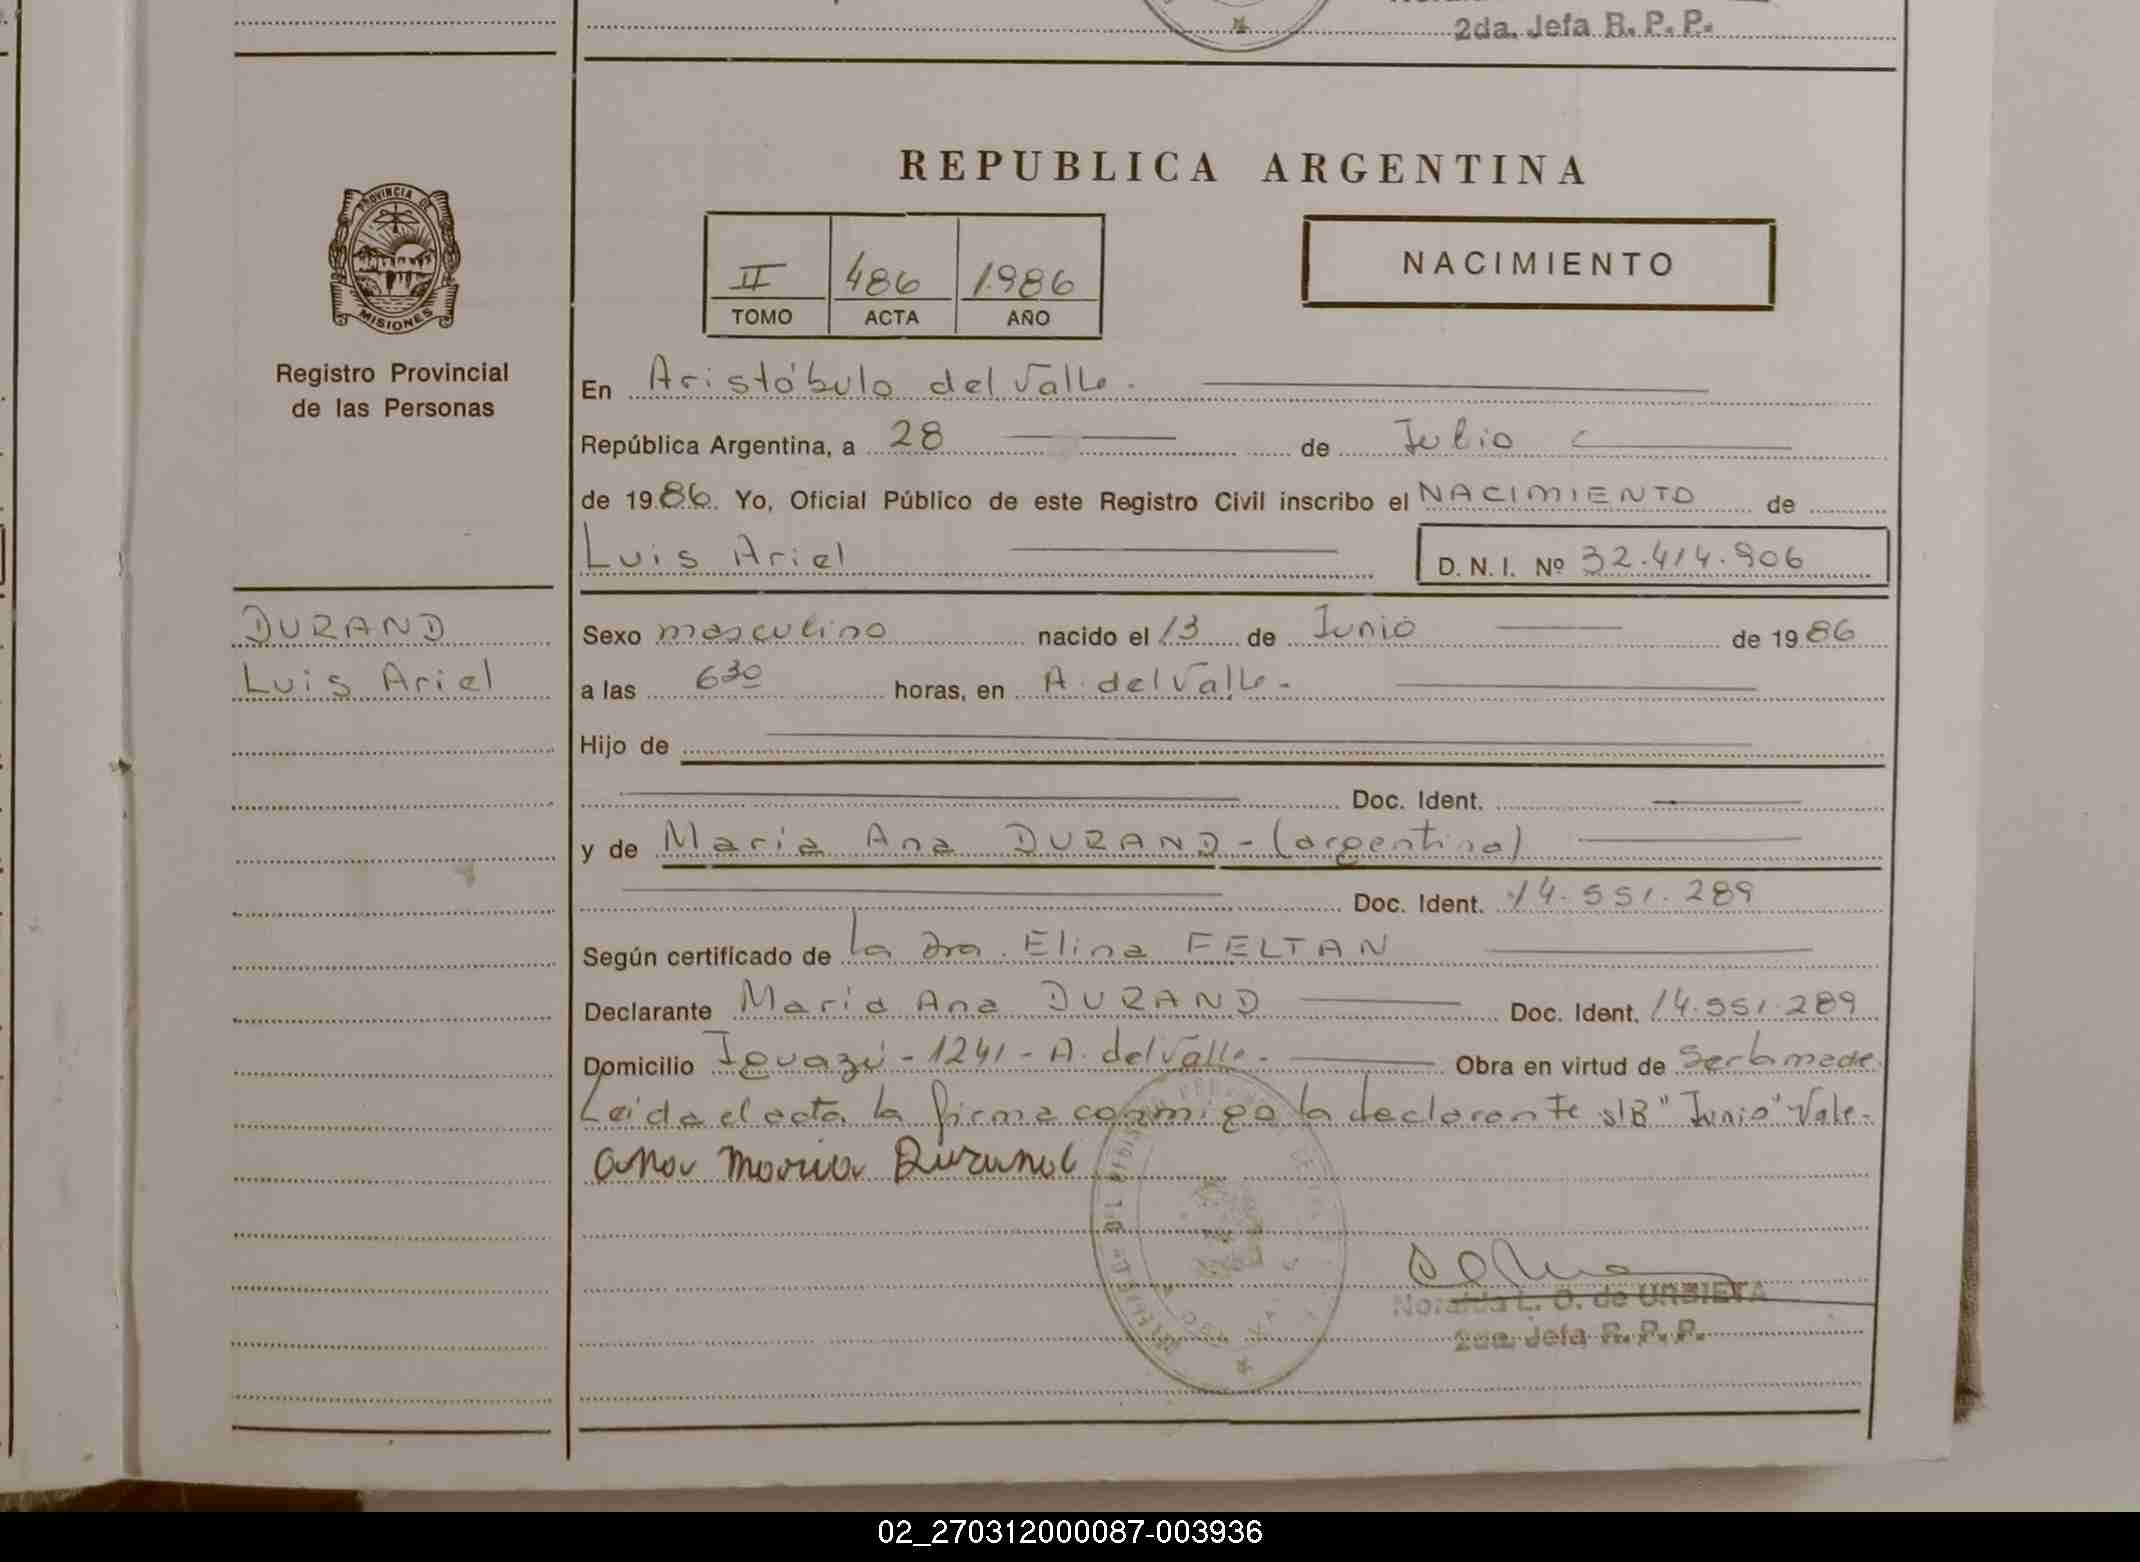 2da. Jefa R. P. P.
REPUBLICA ARGENTINA
PROVINCIA DE
MISIONES
Registro Provincial
de las Personas
II 486 1986
TOMO ACTA AÑO
NACIMIENTO
En Aristóbulo del Valle.
República Argentina, a 28 de Julio
de 1986. Yo, Oficial Público de este Registro Civil inscribo el NACIMIENTO de
Luis Ariel D. N. I. Nº 32.414.906
DURAND
Luis Ariel
Sexo masculino nacido el 13 de Junio de 1986
a las 630 horas, en A. del Valle.-
Hijo de
Doc. Ident.
y de María Ana DURAND - (argentina)
Doc. Ident. 14.551.289
Según certificado de la Dra. Elina FELTAN
Declarante María Ana DURAND Doc. Ident. 14.551.289
Domicilio Iguazú - 1241 - A. del Valle.- Obra en virtud de
Leída el acta la firma conmigo la declarante s/B "Junio" Vale.-
Ana Maria Durand
L. O. de URBIETA
2da. Jefa R. P. P.
02_270312000087-003936